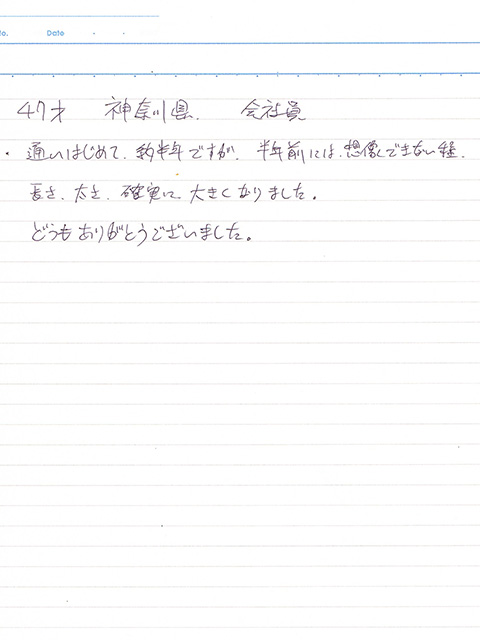 No. Date
47才 神奈川県. 会社員
・通いはじめて、約半年ですが、半年前には、想像できない程、
長さ、太さ、確実に、大きくなりました。
どうもありがとうございました。